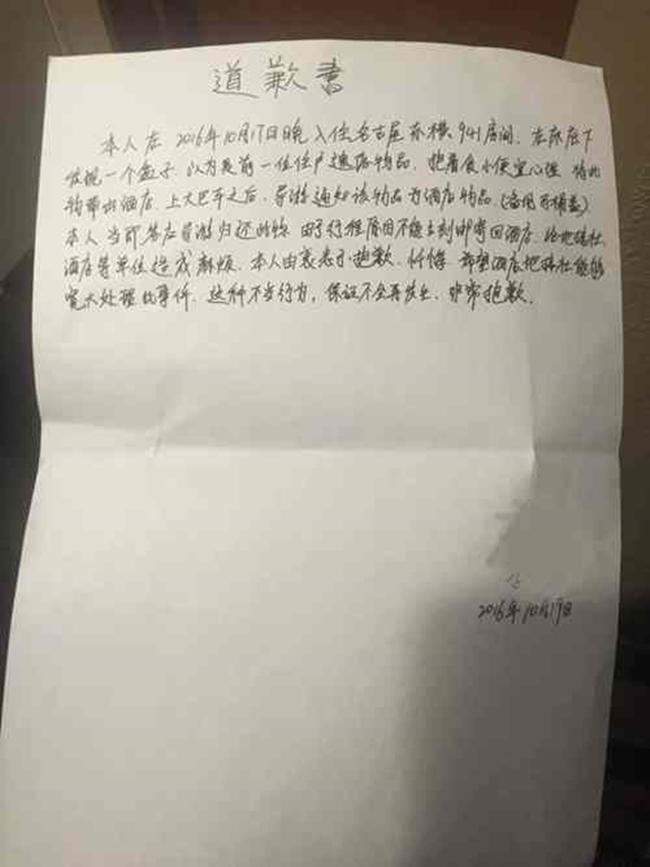 道歉書
本人在2016年10月17日晚入住名古屋东横941房间,在床底下
发现一个盒子,以为是前一位住户遗落物品,抱着贪小便宜心理,将此
物带出酒店,上大巴车之后,导游通知该物品为酒店物品(备用马桶盖)
本人当即答应导游归还此物,由于行程原因不能立刻邮寄回酒店,给地接社,
酒店等单位造成麻烦,本人由衷表示抱歉,忏悔,希望酒店地接社能够
宽大处理此事件,这种不当行为,保证不会再发生,非常抱歉。
2016年10月19日